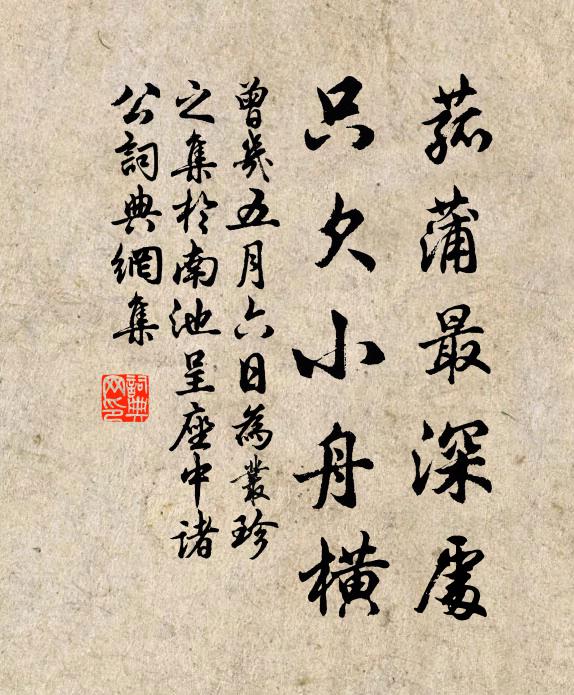 菰蒲最深處
只欠小舟橫
曾幾五月六日為叢珍
之集於南池呈座中諸
公詞典網集
詞典
网印